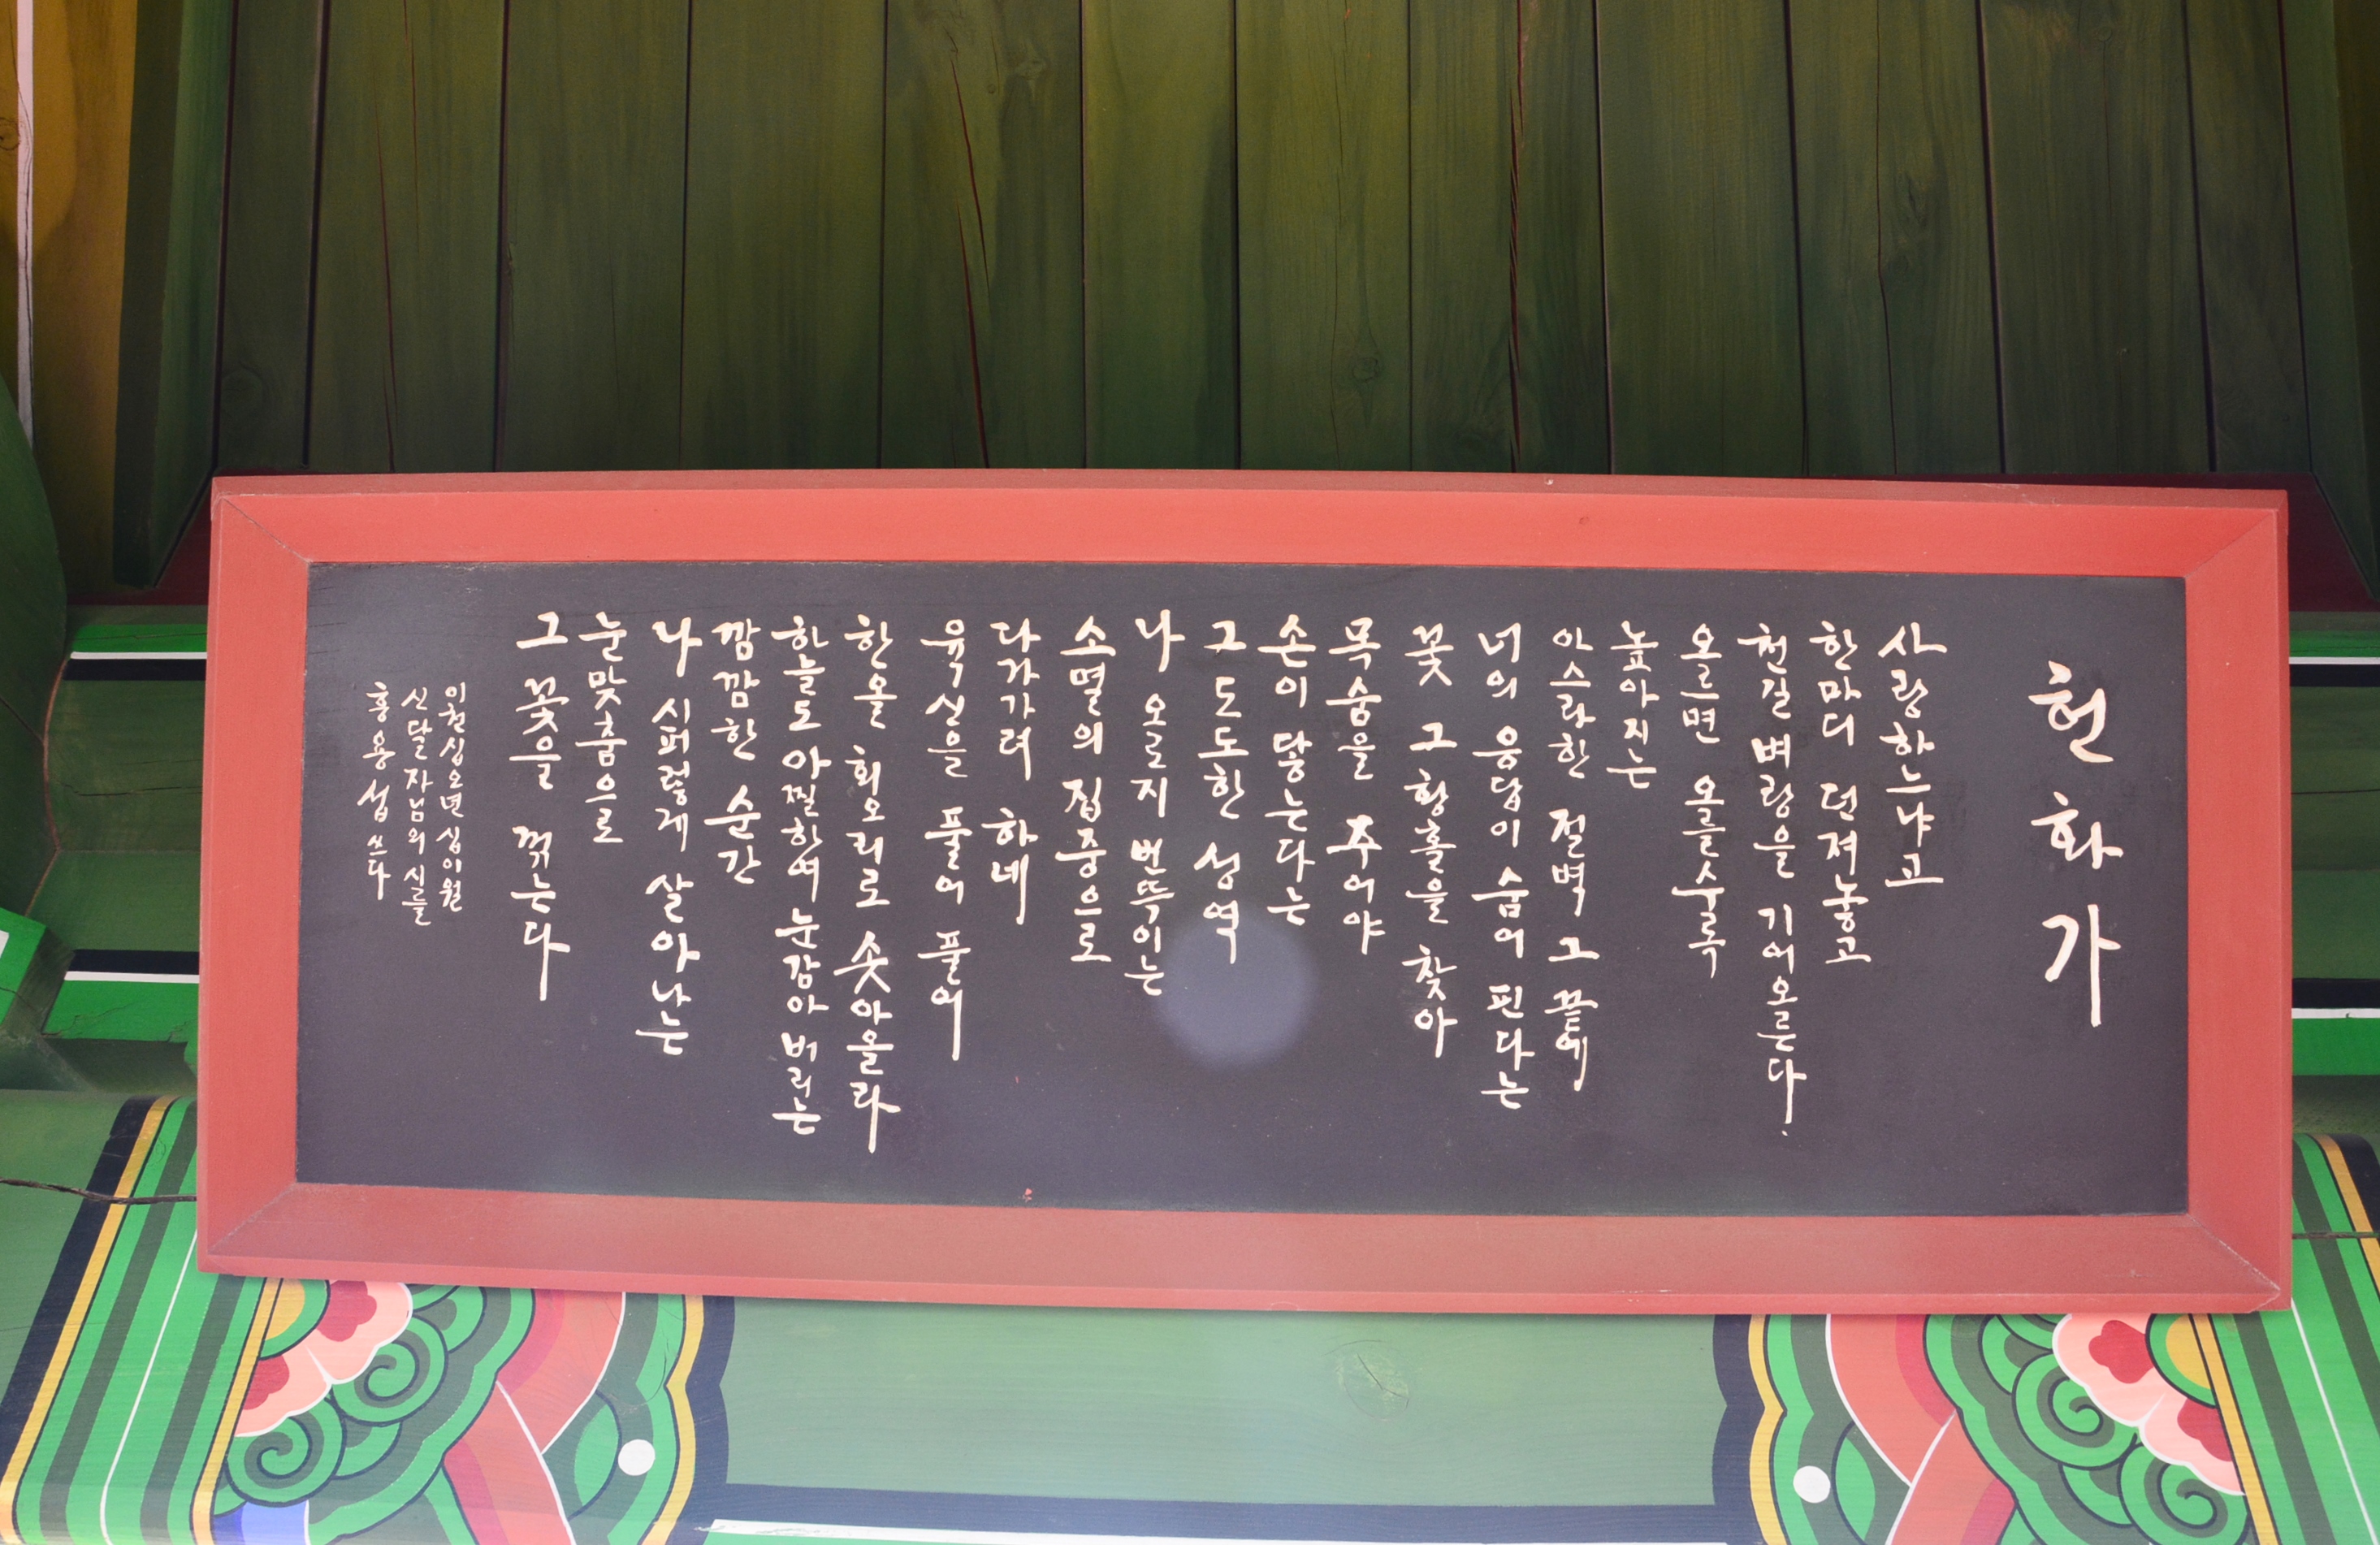 헌화가
사랑하느냐고
한마디 던져놓고
천길 벼랑을 기어오른다.
오르면 오를수록
높아지는
아스라한 절벽 그 끝에
너의 응답이 숨어 핀다는
꽃 그 황홀을 찾아
목숨을 주어야
손이 닿는다는
그 도도한 성역
나 오로지 번뜩이는
소멸의 집중으로
다가가려 하네
육신을 풀어 풀어
한올 회오리로 솟아올라
하늘도 아찔하여 눈감아 버리는
깜깜한 순간
나 시퍼렇게 살아나는
눈맞춤으로
그 꽃을 꺾는다
이천십오년 십이월
신달자님의 시를
홍용섭 쓰다